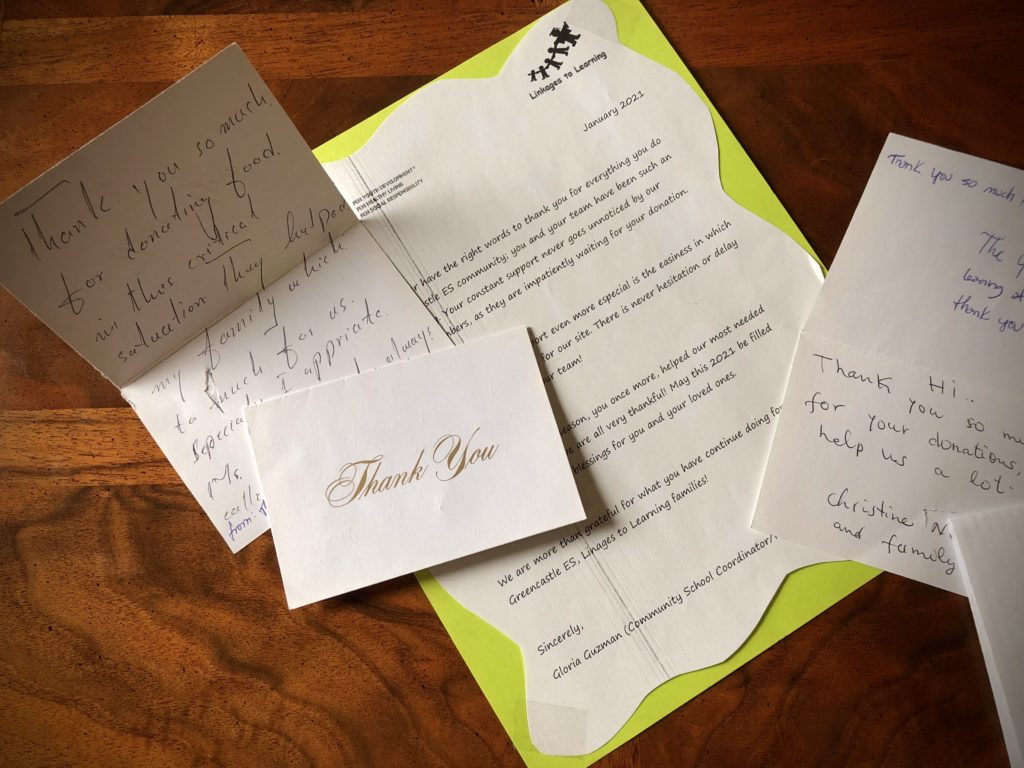 Thank You so much.
for donating food.
in this critcal
satuation they helped
my family which
to much for us.
I appriciate.
always.
Ms.
from:
Thank You
Linkages to Learning
January 2021
FOR YOUTH DEVELOPMENT
FOR HEALTHY LIVING
FOR SOCIAL RESPONSIBILITY
have the right words to thank you for everything you do
ES community; you and your team have been such an
Your constant support never goes unnoticed by our
as they are impatiently waiting for your donation.
even more especial is the easiness in which
for our site. There is never hesitation or delay
team!
season, you once more, helped our most needed
are all very thankful! May this 2021 be filled
blessings for you and your loved ones.
We are more than grateful for what you have continue doing for
Greencastle ES, Linages to Learning families!
Sincerely,
Gloria Guzman (Community School Coordinator),
Thank you so much
The
learning
thank you
Hi..
Thank you so
for your donations,
help us a lot.
christine
and family